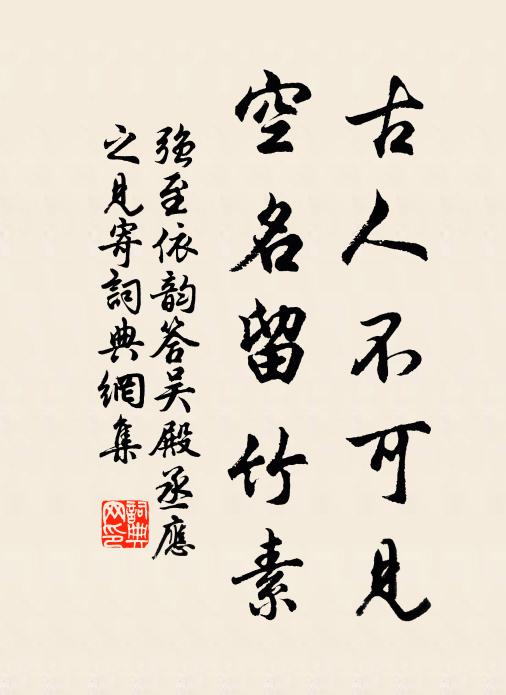 古人不可見
空名留竹素
強至依韵答吴殿丞應
之見寄詞典網集
詞典
网印